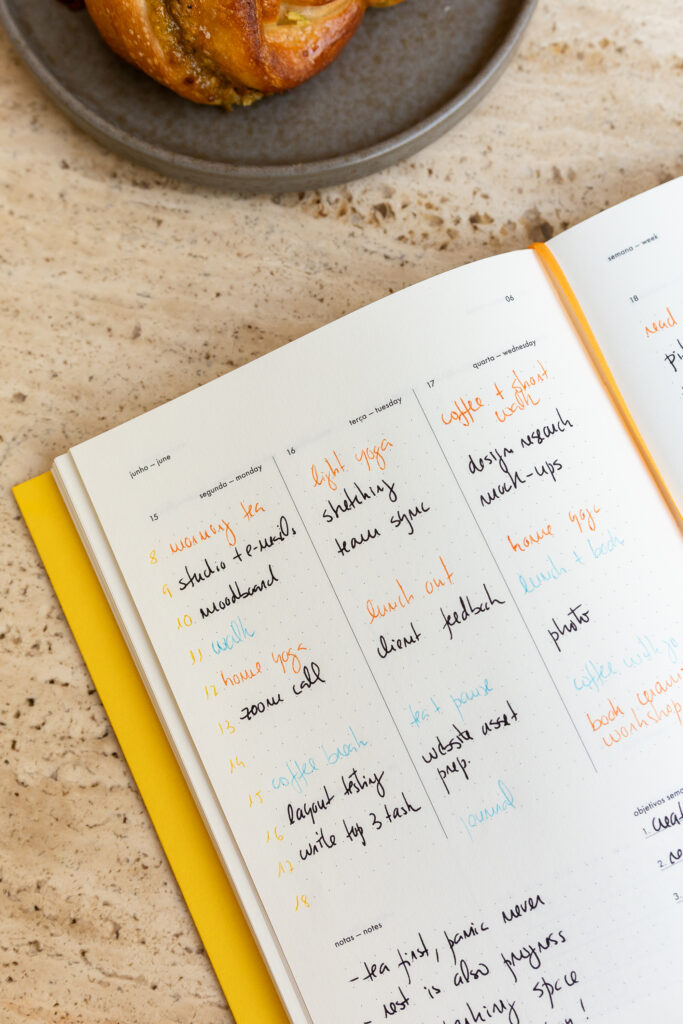 junho — june
06
15
segunda — monday
8 morning tea
9 studio + e-mails
10 moodboard
11 walk
12 home yoga
13 zoome call
14
15 coffee break
16 layout testing
17 write top 3 task
18
16
terça — tuesday
light yoga
sketching
team sync
lunch out
client feedback
tea + pause
website asset
prep.
journal
17
quarta — wednesday
coffee + short
walk
design research
mock-ups
home yoga
lunch + book
photo
coffee with
book
workshop
notas — notes
- tea first, panic never
- rest is also progress
space
semana — week
18
read
objetivos
1.
2.
3.